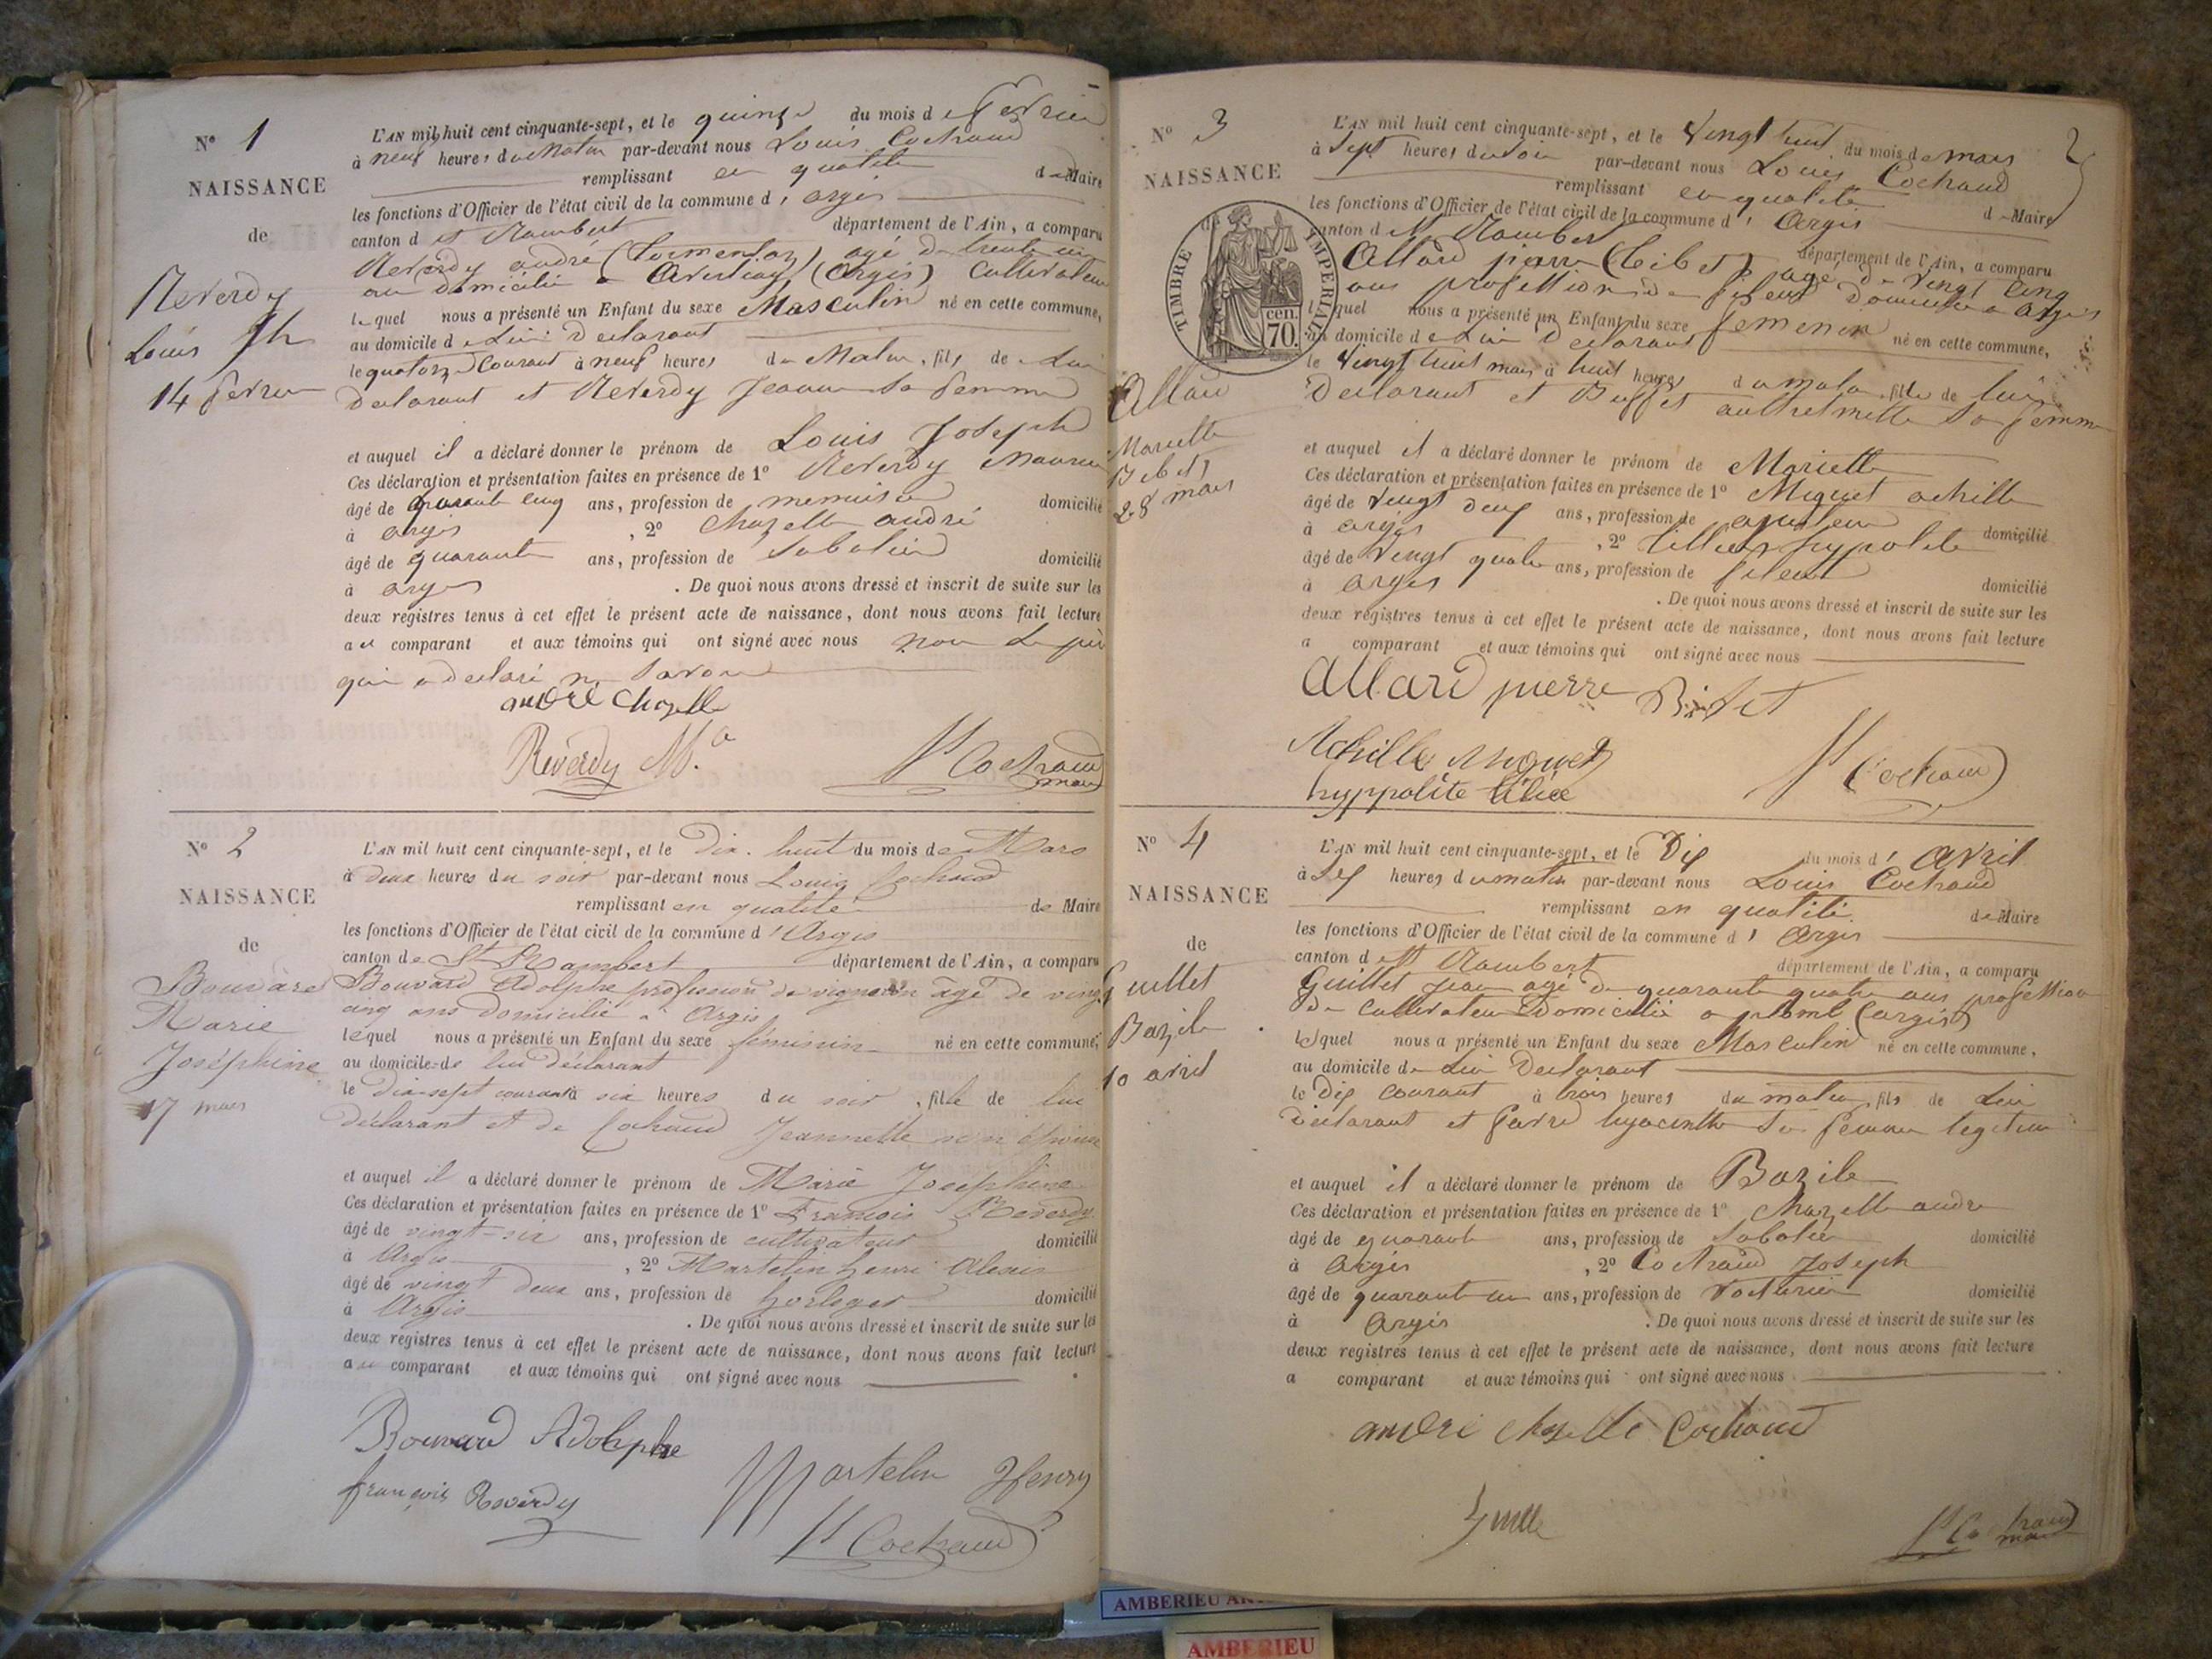 N° 1
NAISSANCE
de
Reverdy
Louis Jh
14 fevrier
L'AN mil huit cent cinquante-sept, et le quinze du mois de fevrier
à neuf heures du Matin par-devant nous Louis Cochraud
remplissant en qualité de Maire
les fonctions d'Officier de l'état civil de la commune d' argis
canton de st Rambert département de l'Ain, a comparu
Reverdy andré agé de trente
domicilié a (Argis) Cultivateur
lequel nous a présenté un Enfant du sexe Masculin né en cette commune,
au domicile de Lui declarant
le quatorze Courant à neuf heures du Matin, fils de Lui
declarant et Reverdy Jeanne Sa femme
et auquel il a déclaré donner le prénom de Louis Joseph
Ces déclaration et présentation faites en présence de 1° Reverdy
âgé de quarante cinq ans, profession de menuisier domicilié
à argis , 2° Chazelle andré
âgé de quarante ans, profession de Sabotier domicilié
à argis . De quoi nous avons dressé et inscrit de suite sur les
deux registres tenus à cet effet le présent acte de naissance, dont nous avons fait lecture
au comparant et aux témoins qui ont signé avec nous non Le père
qui a declaré ne Savoir
andré Chazelle
Reverdy M.
Ls Cochraud
maire
N° 2
NAISSANCE
de
Bouvard
Marie
Joséphine
17 mars
L'AN mil huit cent cinquante-sept, et le Dix-huit du mois de Mars
à deux heures du soir par-devant nous Louis Cochraud
remplissant en qualité de Maire
les fonctions d'Officier de l'état civil de la commune d'Argis
canton de St Rambert département de l'Ain, a comparu
Bouvard Adolphe profession de vigneron âgé de vingt
cinq ans Domicilié à Argis
lequel nous a présenté un Enfant du sexe féminin né en cette commune,
au domicile de lui déclarant
le dix-sept courant à six heures du soir, fille de lui
déclarant et de Cochaud Jeannette son épouse
et auquel il a déclaré donner le prénom de Marie Joséphine
Ces déclaration et présentation faites en présence de 1° François Reverdy
âgé de vingt-six ans, profession de cultivateur domicilié
à Argis , 2° Martelin henri Alexis
âgé de vingt deux ans, profession de horloger domicilié
à Argis . De quoi nous avons dressé et inscrit de suite sur les
deux registres tenus à cet effet le présent acte de naissance, dont nous avons fait lecture
au comparant et aux témoins qui ont signé avec nous
Bouvard Adolphe
françois Reverdy
Martelin Henry
Ls Cochraud
2
N° 3
NAISSANCE
de
TIMBRE IMPERIAL
70. cen.
Allard
Mariette
28 mars
L'AN mil huit cent cinquante-sept, et le Vingt huit du mois de mars
à Sept heures du Soir par-devant nous Louis Cochraud
remplissant en qualité de Maire
les fonctions d'Officier de l'état civil de la commune d' Argis
canton de St Rambert département de l'Ain, a comparu
Allard pierre agé de Vingt Cinq
ans profession de fileur domicilié a Argis
lequel nous a présenté un Enfant du sexe femenin né en cette commune,
au domicile de Lui Declarant
le Vingt huit mars à huit heures du matin, fille de lui
Declarant et Buffet anthelmette Sa femme
et auquel il a déclaré donner le prénom de Mariette
Ces déclaration et présentation faites en présence de 1° Miguet achille
âgé de Vingt deux ans, profession de domicilié
à argis , 2° hypolite
âgé de Vingt quatre ans, profession de fileur domicilié
à Argis . De quoi nous avons dressé et inscrit de suite sur les
deux registres tenus à cet effet le présent acte de naissance, dont nous avons fait lecture
a comparant et aux témoins qui ont signé avec nous
Allard pierre
Achille Miguet
hyppolite
Ls Cochraud
N° 4
NAISSANCE
de
Guillet
Bazile
10 avril
L'AN mil huit cent cinquante-sept, et le Dix du mois d' Avril
à Sex heures du matin par-devant nous Louis Cochraud
remplissant en qualité de Maire
les fonctions d'Officier de l'état civil de la commune d' Argis
canton de St Rambert département de l'Ain, a comparu
Guillet Jean agé de quarante quatre ans profession
de Cultivateur Domicilié a (argis)
lequel nous a présenté un Enfant du sexe Masculin né en cette commune,
au domicile de Lui Declarant
le Dix courant à trois heures du matin, fils de Lui
Declarant et Favre hyacinthe Sa femme legitime
et auquel il a déclaré donner le prénom de Bazile
Ces déclaration et présentation faites en présence de 1° Chazelle andre
âgé de quarante ans, profession de Sabotier domicilié
à Argis , 2° Cochraud Joseph
âgé de quarante un ans, profession de domicilié
à Argis . De quoi nous avons dressé et inscrit de suite sur les
deux registres tenus à cet effet le présent acte de naissance, dont nous avons fait lecture
a comparant et aux témoins qui ont signé avec nous
andré chazelle Cochaud
Guille
Ls Cochraud
maire
AMBERIEU
AMBERIEU